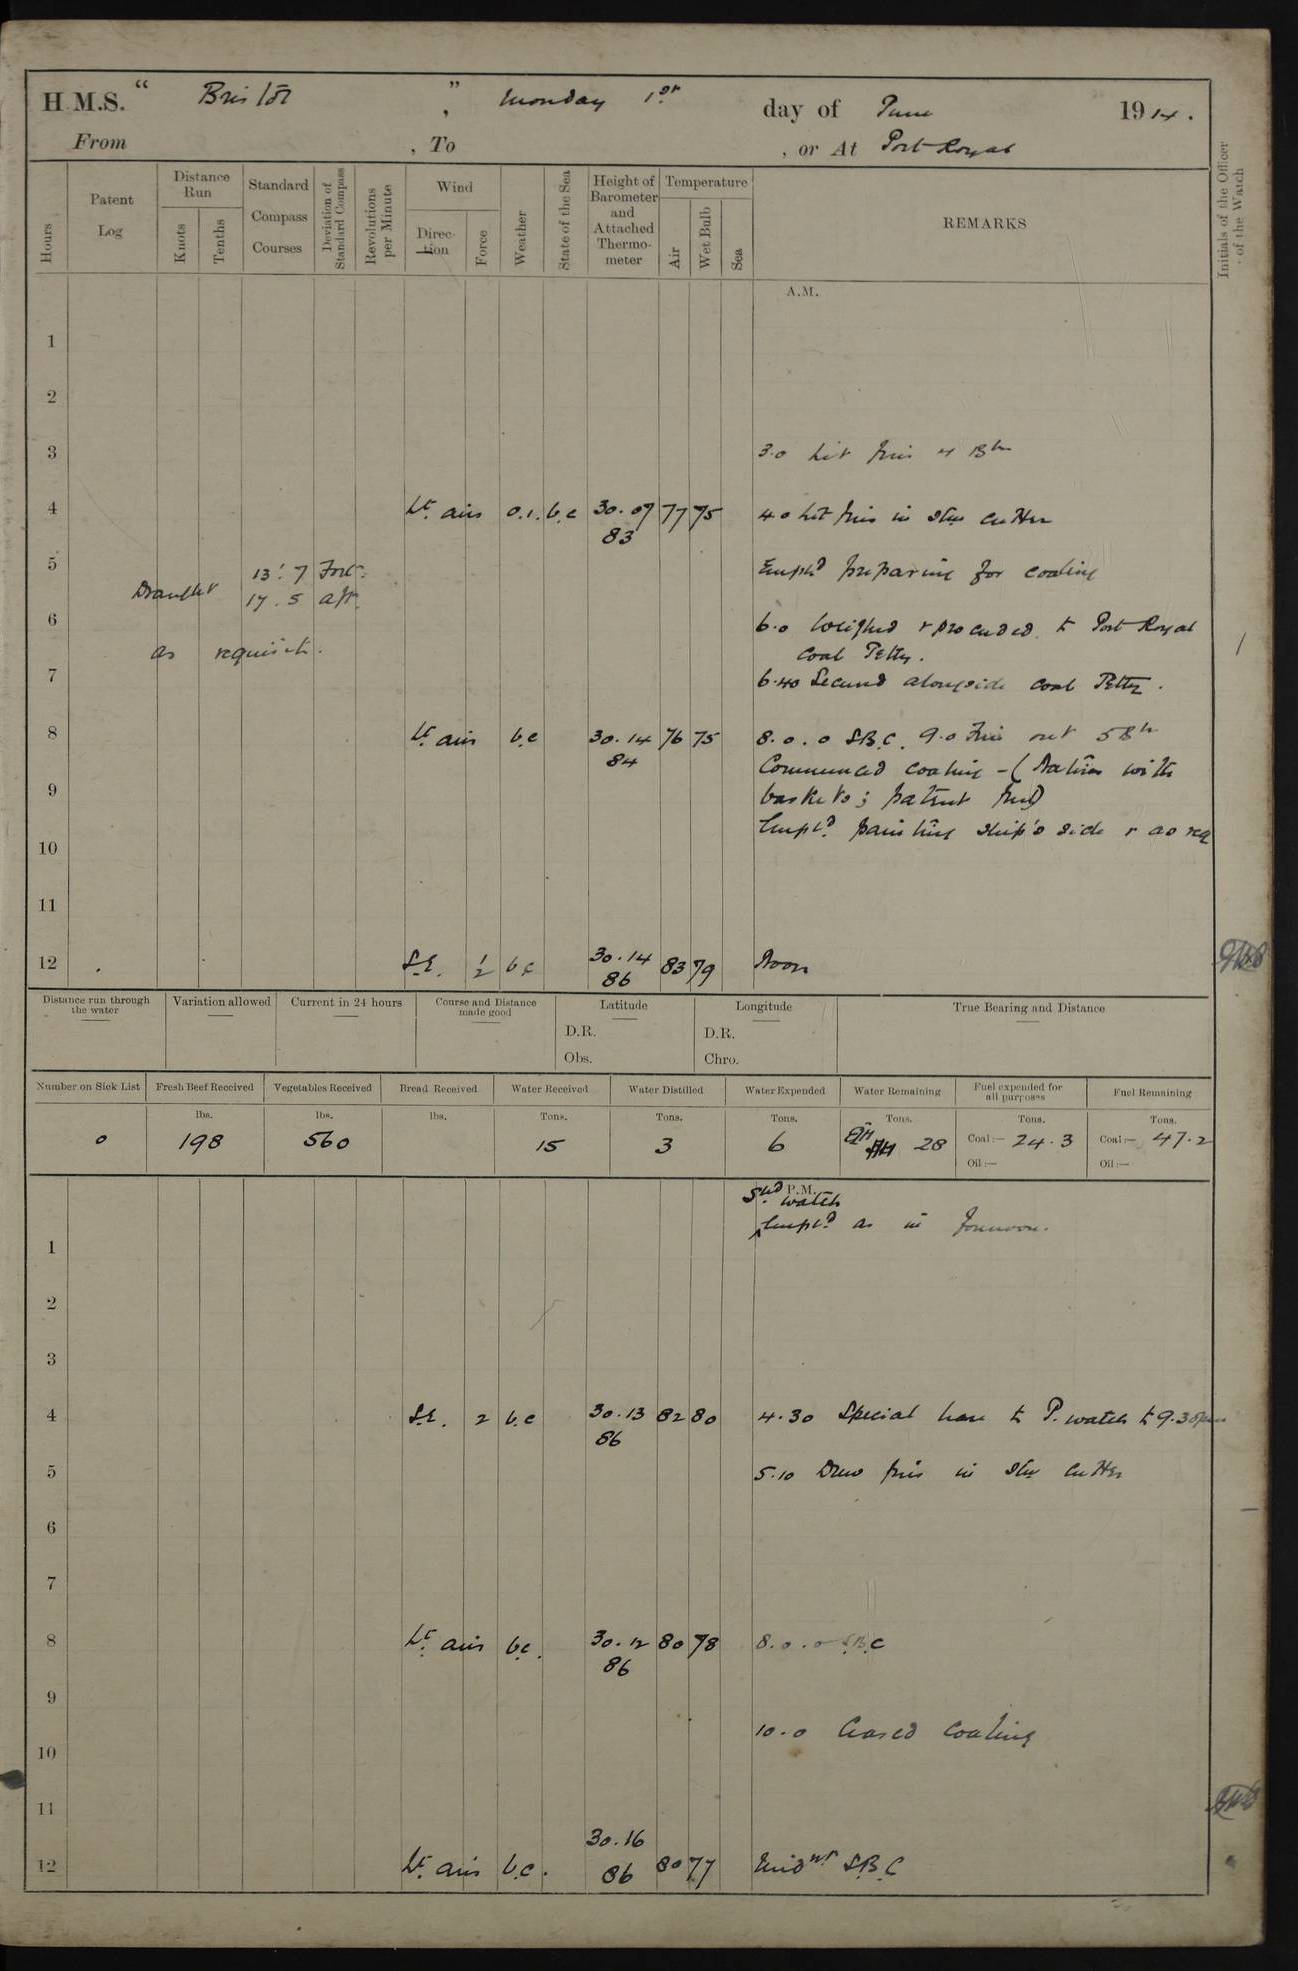 H.M.S. "Bristol", Monday 1st day of June 1914.
From , To , or At Port Royal
Hours
Patent Log
Distance Run
Knots
Tenths
Standard Compass Courses
Deviation of Standard Compass
Revolutions per Minute
Wind
Direction
Force
Weather
State of the Sea
Height of Barometer and Attached Thermometer
Temperature
Air
Wet Bulb
Sea
REMARKS
Initials of the Officer of the Watch
A.M.
1
2
3 3.0 Lit fires 4 Brs
4 Lt. airs 0.1. b.c 30.07 77 75 4.0 Lit fires in stm cutter
83
5 Empld preparing for coaling
Draught 13'. 7 Ford.
17. 5 aft.
6 6.0 Weighed & proceeded to Port Royal
as requisite. Coal Jetty.
7 6.40 Secured alongside coal Jetty.
8 Lt. airs b.c 30.14 76 75 8.0.0 S.B.C. 9.0 Fires out 5 Brs
84
Commenced coaling - (Natives with
9 baskets; patent fuel)
Empld. painting ship's side & as req
10
11
12 S.E. 1/2 b.c 30.14 83 79 Noon
86
Distance run through the water
Variation allowed
Current in 24 hours
Course and Distance made good
Latitude
D.R.
Obs.
Longitude
D.R.
Chro.
True Bearing and Distance
Number on Sick List
Fresh Beef Received
Vegetables Received
Bread Received
Water Received
Water Distilled
Water Expended
Water Remaining
Fuel expended for all purposes
Fuel Remaining
lbs. lbs. lbs. Tons. Tons. Tons. Tons. Tons. Tons.
0 198 560 15 3 6 28 Coal:— 24.3 Coal:— 47.2
Oil:— Oil:—
P.M.
Sbd. watch
Empld. as in forenoon.
1
2
3
4 S.E. 2 b.c 30.13 82 80 4.30 Special leave to P. watch to 9.30pm
86
5 5.10 Drew fires in stm cutter
6
7
8 Lt. airs b.c. 30.12 80 78 8.0.0 S.B.C
86
9
10.0 Ceased coaling
10
11
30.16
12 Lt. airs b.c. 86 80 77 Midnt. S.B.C